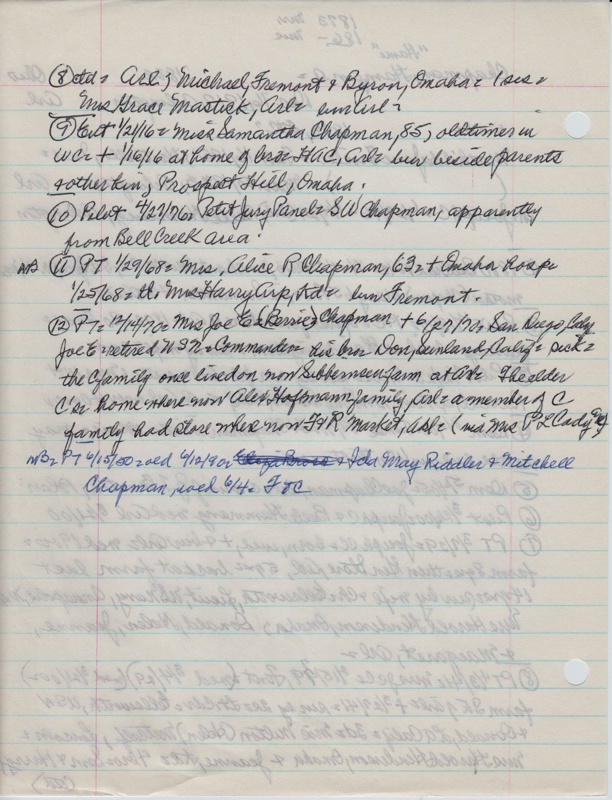 ⑧ ctd = Arl; Michael, Fremont & Byron, Omaha = 1 sis =
Mrs Grace Mastick, Arl =
⑨ Ent 1/21/16 = Miss Samantha Chapman, 85, oldtimer in
WC = + 1/16/16 at home of bro = HAC, Arl = bur beside parents
& other kin, Prospect Hill, Omaha.
⑩ Pilot 4/27/76 = Petit Jury Panel = SW Chapman, apparently
from Bell Creek area.
NB ⑪ PT 1/29/68 = Mrs. Alice R Chapman, 63 = + Omaha hosp =
1/25/68 = Mrs Harry Arp, = bur Fremont.
⑫ PT = 12/14/70 = Mrs Joe E = (Bessie) Chapman + 6/27/70 = San Diego, Calif
Joe E = retired USN = Commander = his bro = Don, Sunland, Calif =
the C family once lived on now farm at Arl = The older
C's home where now Alex Hoffmann family, Arl = a member of C
family had store where now F&R Market, Arl = (via Mrs P L Cady
NB = PT 6/15/50 = wed 6/12/90 = & Ida May Riddler & Mitchell
Chapman, wed 6/4 =